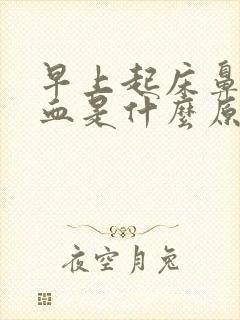 早上起床鼻
血是什麼原
夜空月兔